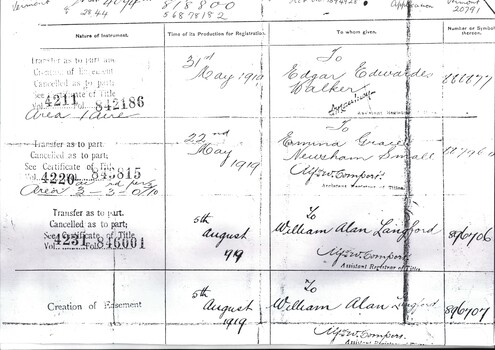 Vermont
2844
818800
56878182
Application
Vermont
20791
Nature of Instrument.
Time of its Production for Registration.
To whom given.
Number or Symbol thereon.
Transfer as to part and
Creation of Easement
See Certificate of Title
Vol. 4211 842186
Area 1 acre
31st
May 1919
To
Edgar Edwardes
Walker
Assistant Registrar
Transfer as to part;
Cancelled as to part;
See Certificate of Title
Vol. 4220 843815
Area
22nd
May
1919
To
Emma Grace
Newsham Small
Assistant Registrar of Titles.
Transfer as to part.
Cancelled as to part;
See Certificate of Title
Vol. 4231 Fol. 846001
5th
August
1919
To
William Alan Langford
Assistant Registrar of Titles.
896706
Creation of Easement
5th
August
1919
To
William Alan Langford
Assistant Registrar of Titles.
896707